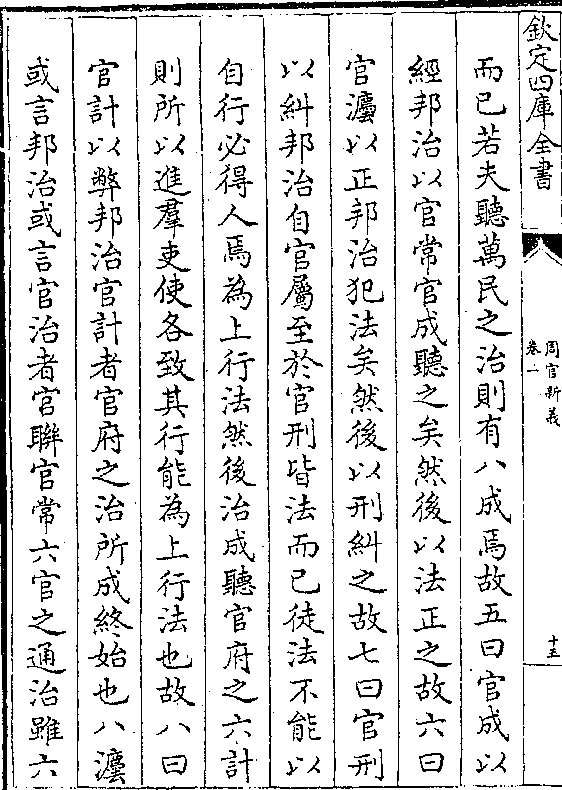 欽定四庫全書
周官新義
卷一
十五
而已若夫聽萬民之治則有八成焉故五曰官成以
經邦治以官常官成聽之矣然後以法正之故六曰
官灋以正邦治犯法矣然後以刑糾之故七曰官刑
以糾邦治自官屬至於官刑皆法而已徒法不能以
自行必得人焉為上行法然後治成聽官府之六計
則所以進羣吏使各致其行能為上行法也故八曰
官計以弊邦治官計者官府之治所成終始也八灋
或言邦治或言官治者官聯官常六官之通治雖六